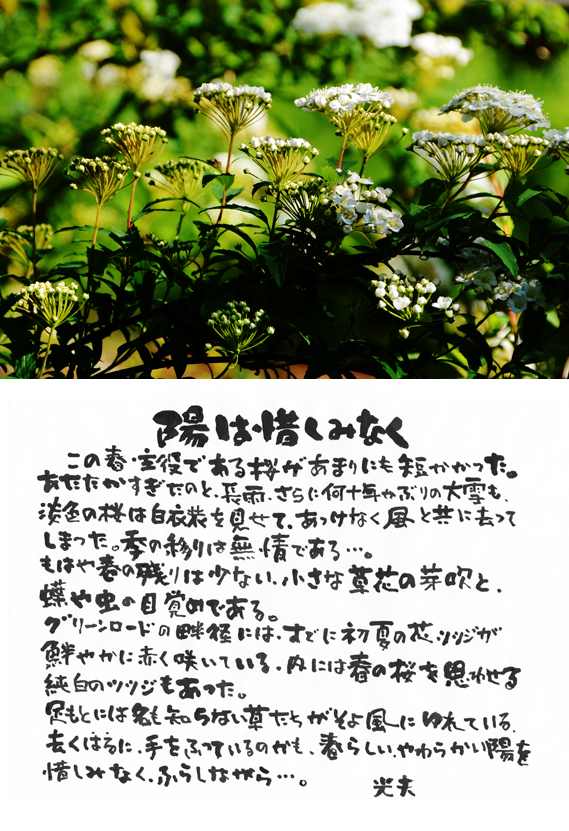 陽は惜しみなく
この春・主役である桜があまりにも短かかった。
あたたかすぎたのと、長雨、さらに何十年ぶりの大雪も、
淡色の桜は白衣装を見せて、あっけなく風と共に去って
しまった。季の移りは無情である…。
もはや春の残りは少ない、小さな草花の芽吹と、
蝶や虫の目覚めである。
グリーンロードの畔径には、すでに初夏の花、ツツジが
鮮やかに赤く咲いている、内には春の桜を思わせる
純白のツツジもあった。
足もとには名も知らない草たちがそよ風にゆれている、
去くはるに、手をふっているのかも、春らしいやわらかい陽を
惜しみなく、ふらしながら…。
光夫